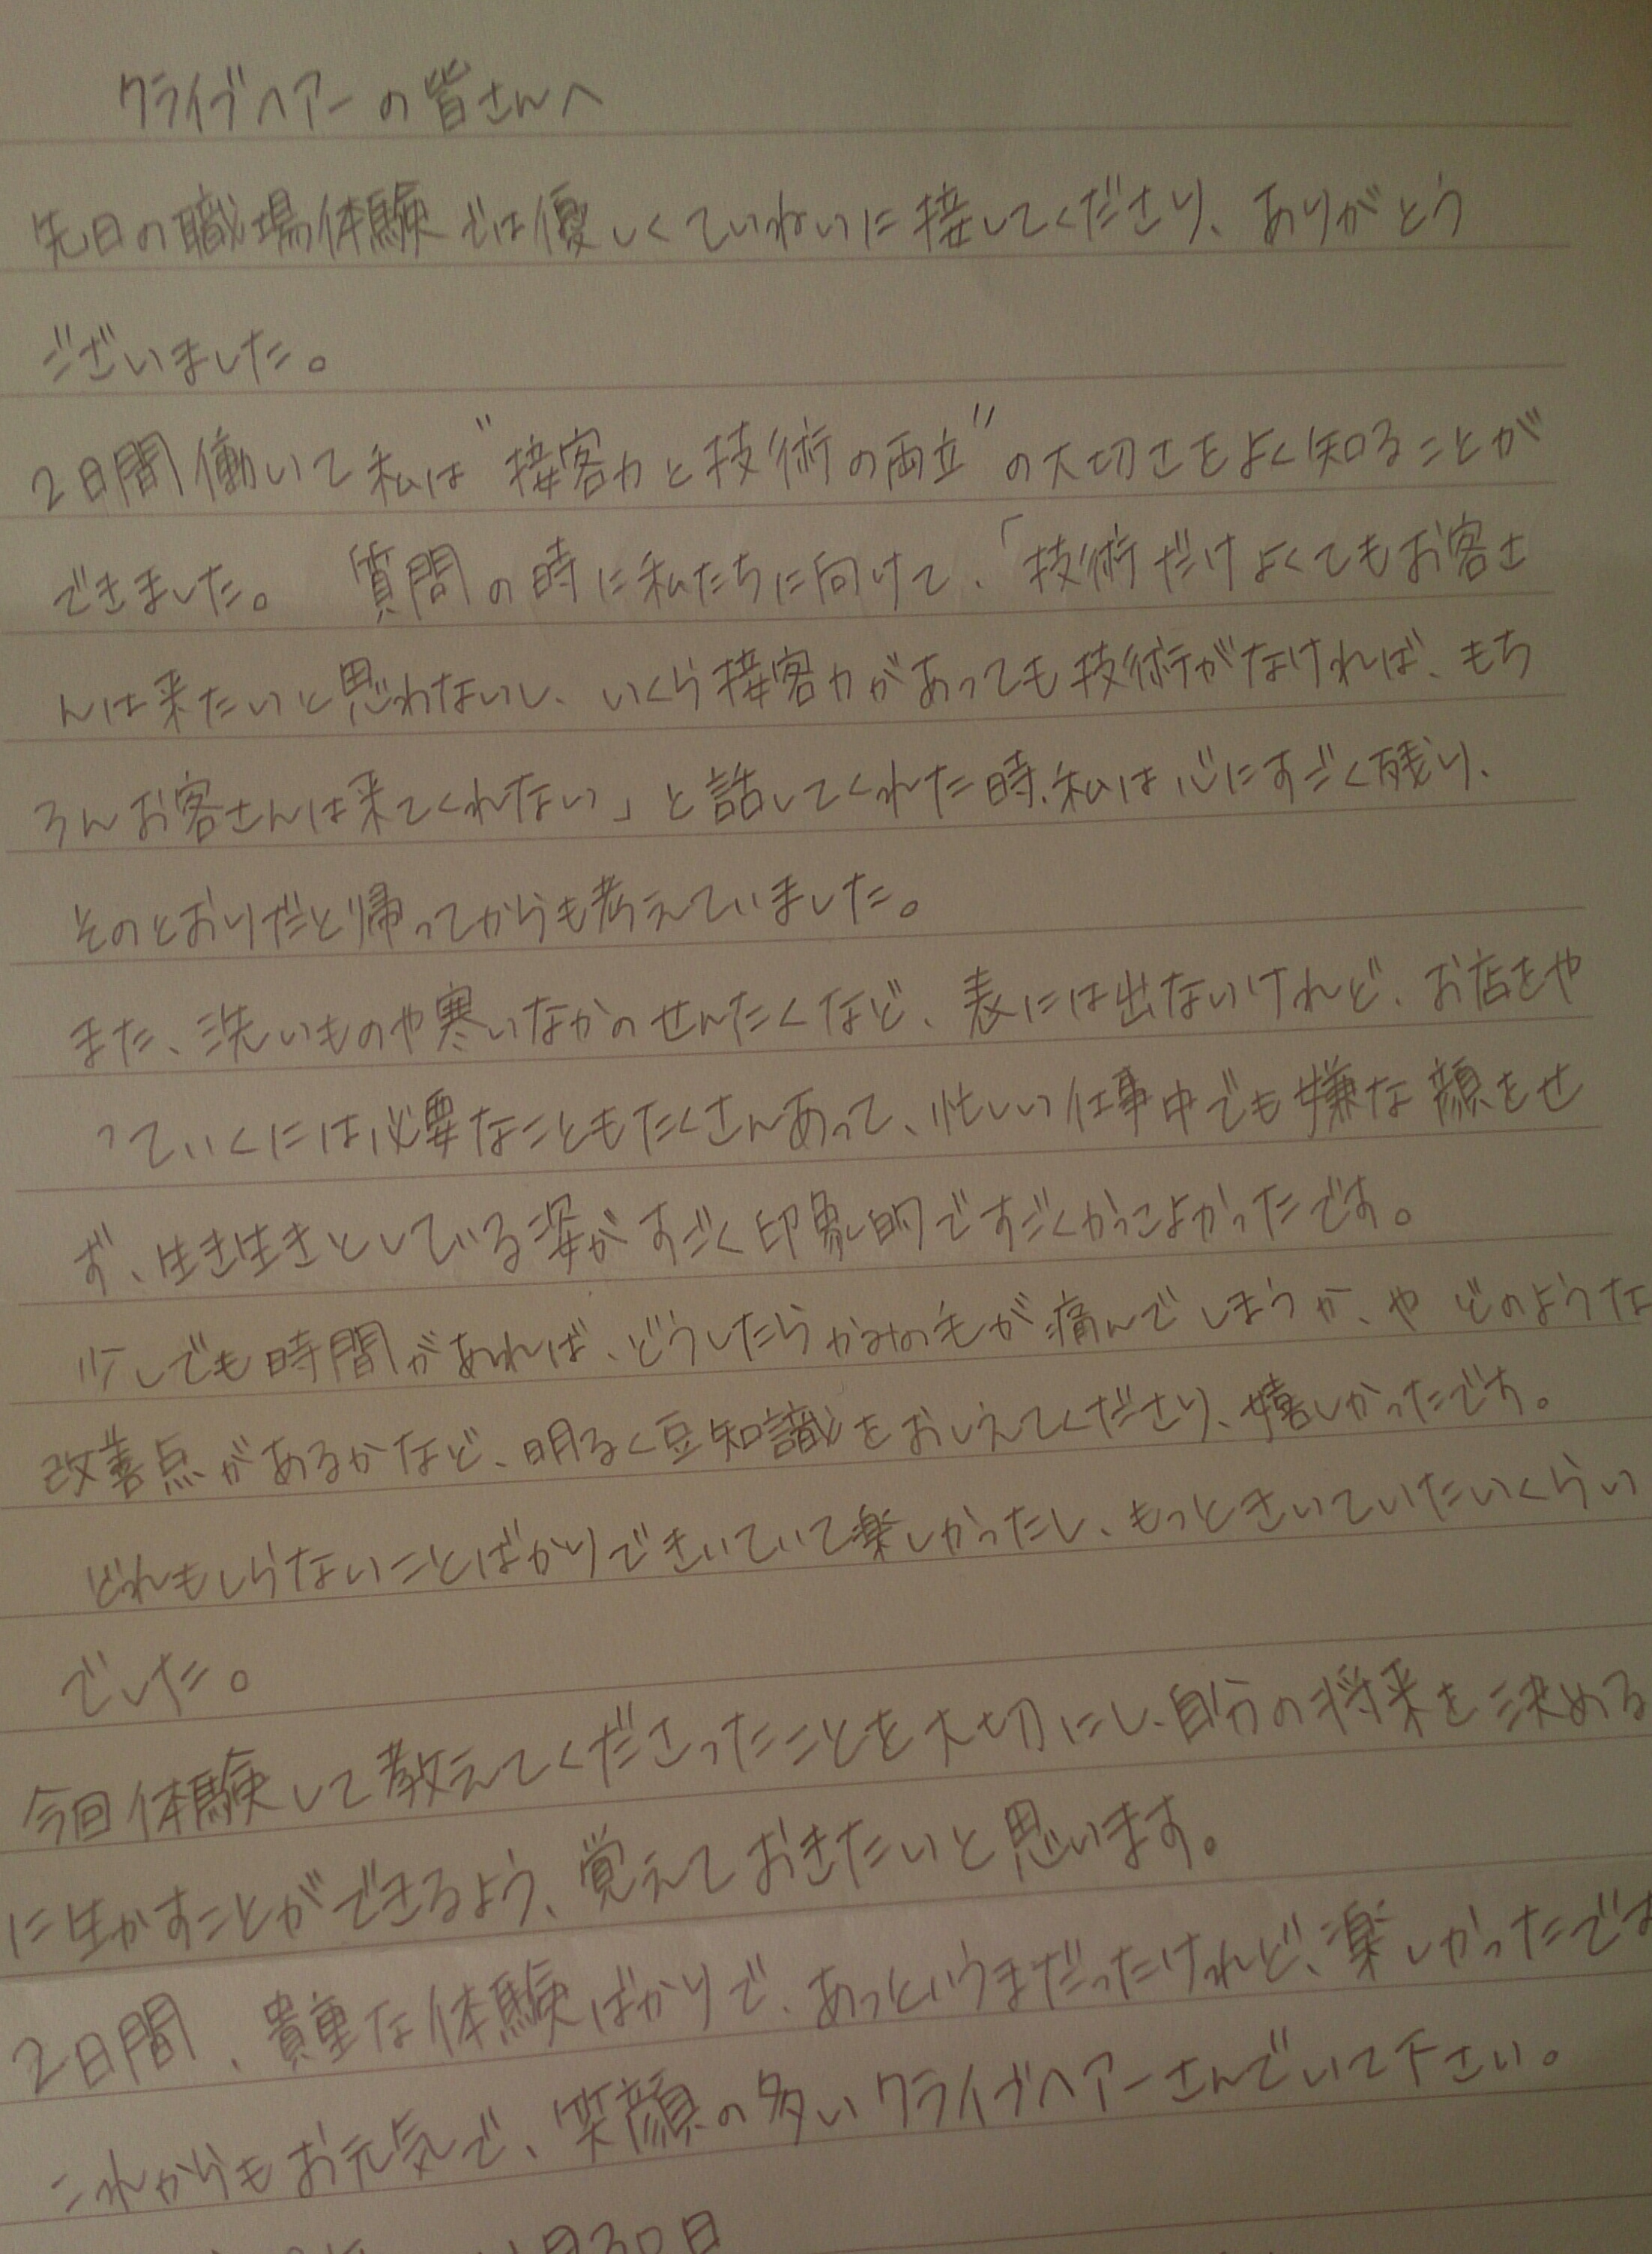 クライブヘアーの皆さんへ
先日の職場体験では優しくていねいに接してくださり、ありがとう
ございました。
2日間働いて私は"接客力と技術の両立"の大切さをよく知ることが
できました。 質問の時に私たちに向けて、「技術だけよくてもお客さ
んは来たいと思わないし、いくら接客力があっても技術がなければ、もち
ろんお客さんは来てくれない」と話してくれた時、私は心にすごく残り、
そのとおりだと帰ってからも考えていました。
また、洗いものや寒いなかのせんたくなど、表には出ないけれど、お店をや
っていくには必要なこともたくさんあって、忙しい仕事中でも嫌な顔をせ
ず、生き生きとしている姿がすごく印象的ですごくかっこよかったです。
少しでも時間があれば、どうしたらかみの毛が痛んでしまうか、やどのような
改善点があるかなど、明るく豆知識をおしえてくださり、嬉しかったです。
どれもしらないことばかりできいていて楽しかったし、もっときいていたいくらい
でした。
今回体験して教えてくださったことを大切にし、自分の将来を決める
に生かすことができるよう、覚えておきたいと思います。
2日間、貴重な体験ばかりで、あっというまだったけれど、楽しかったです
これからもお元気で、笑顔の多いクライブヘアーさんでいて下さい。
月30日